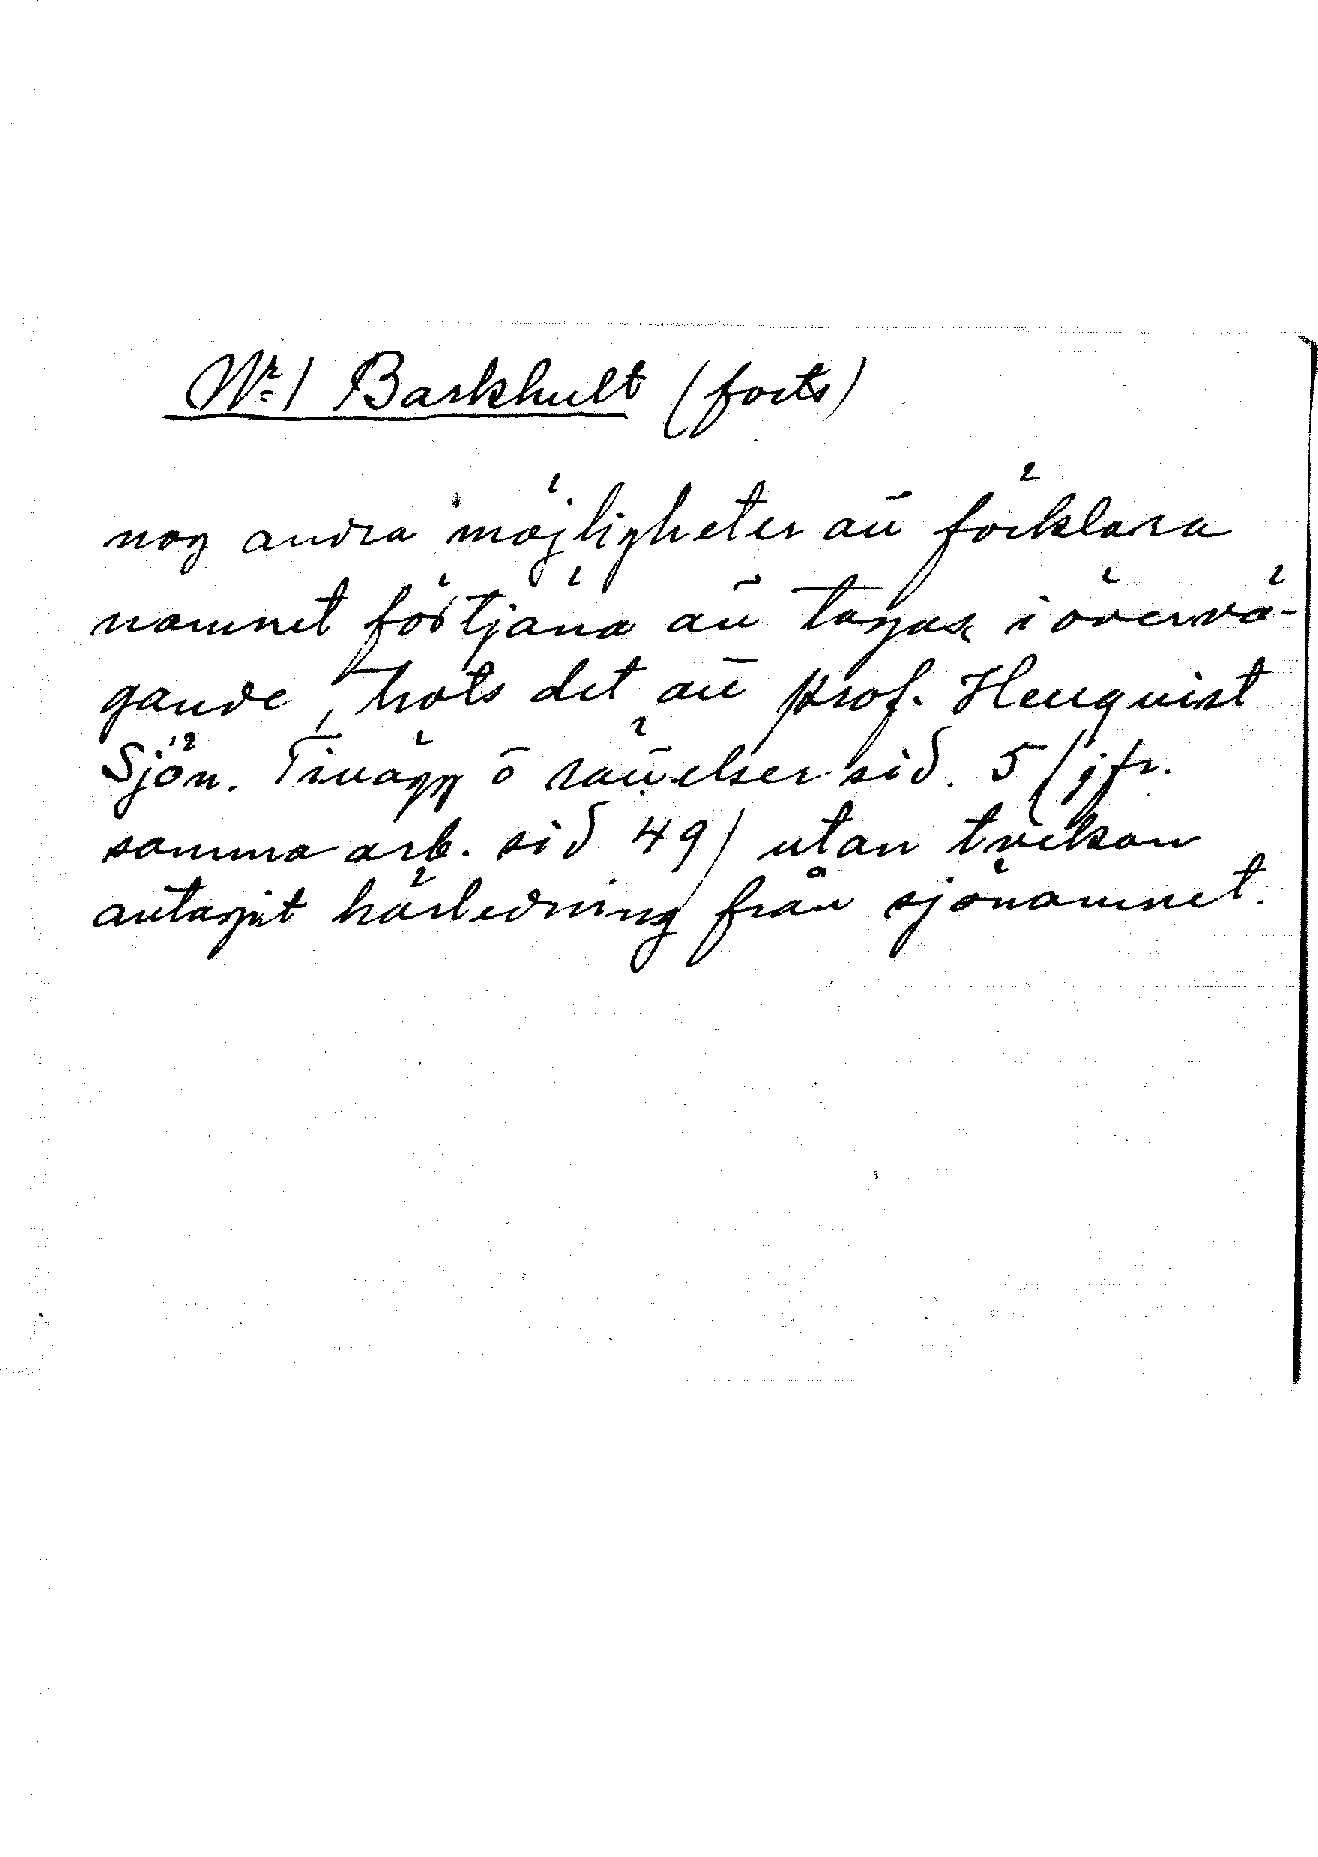 Nr 1 Barkhult (forts)
nog andra möjligheter att förklara
namnet förtjäna att tagas i övervä-
gande, trots det att prof. Hellquist
Sjön. Tillägg o rättelser sid. 5 (jfr.
samma arb. sid 49) utan tvekan
antagit härledning från sjönamnet.